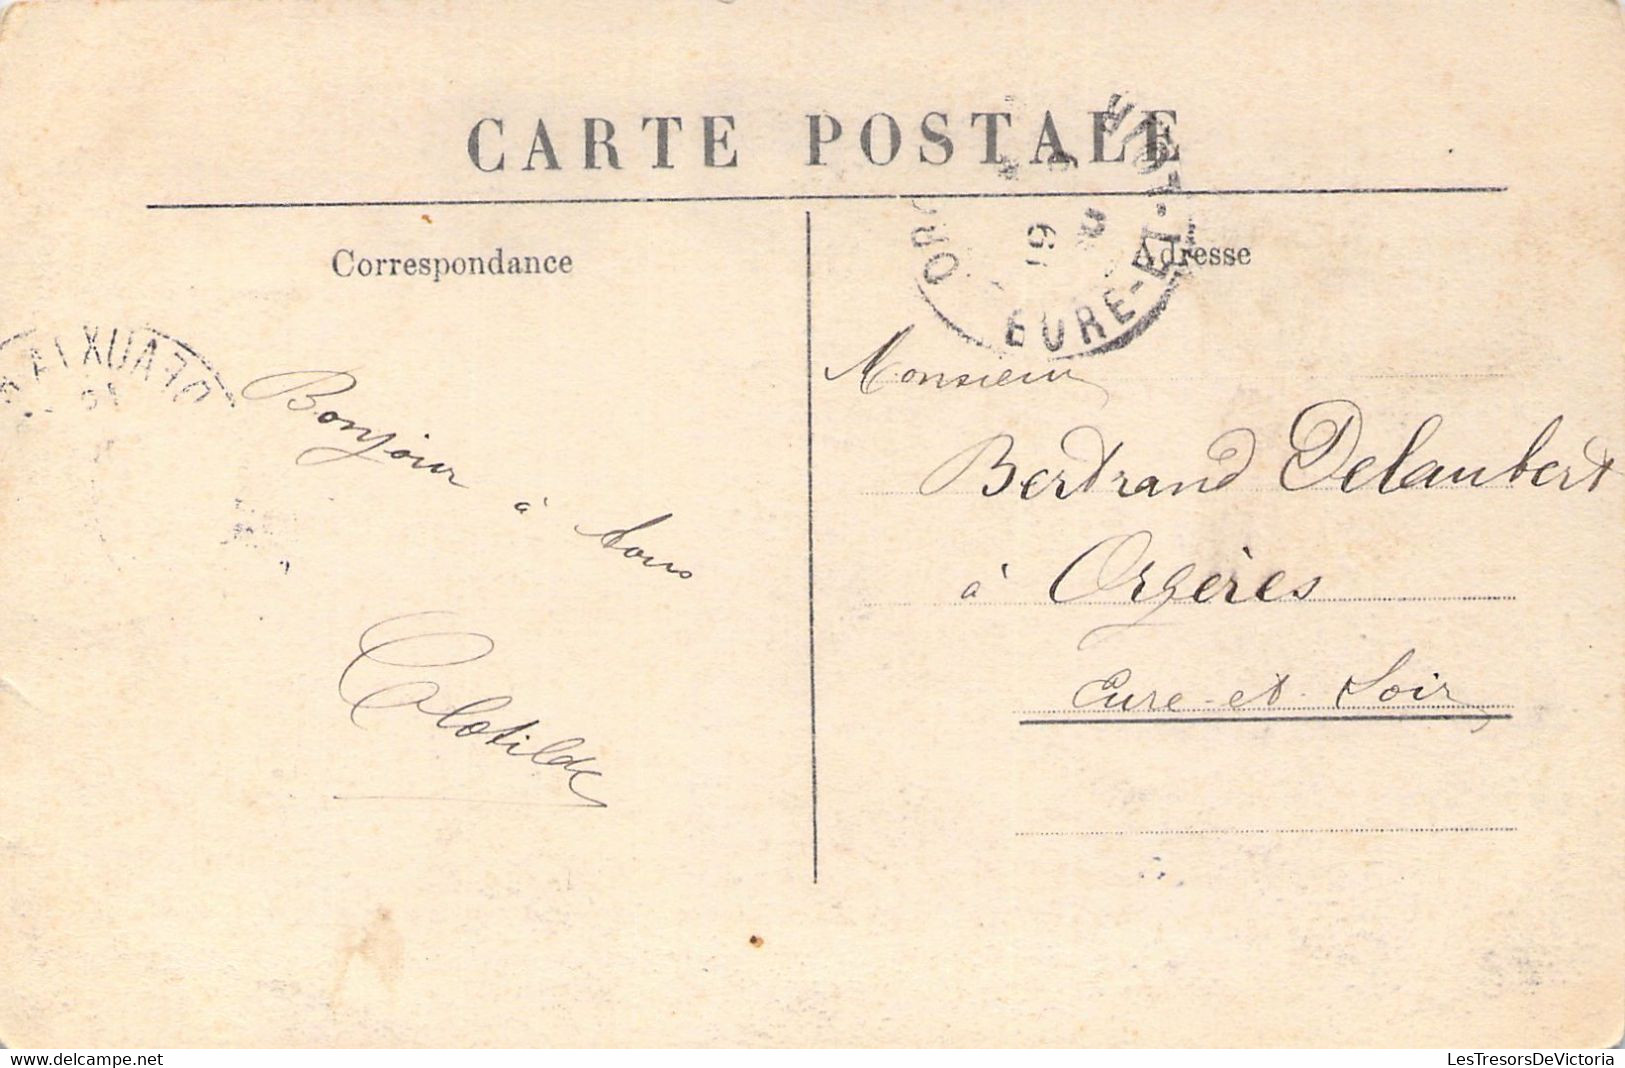 CARTE POSTALE
Correspondance
Adresse
EURE-ET-LOIR
Bonjour à tous
Clotilde
Monsieur
Bertrand Delaubert
à Orgères
Eure-et-Loir
www.delcampe.net
LesTresorsDeVictoria